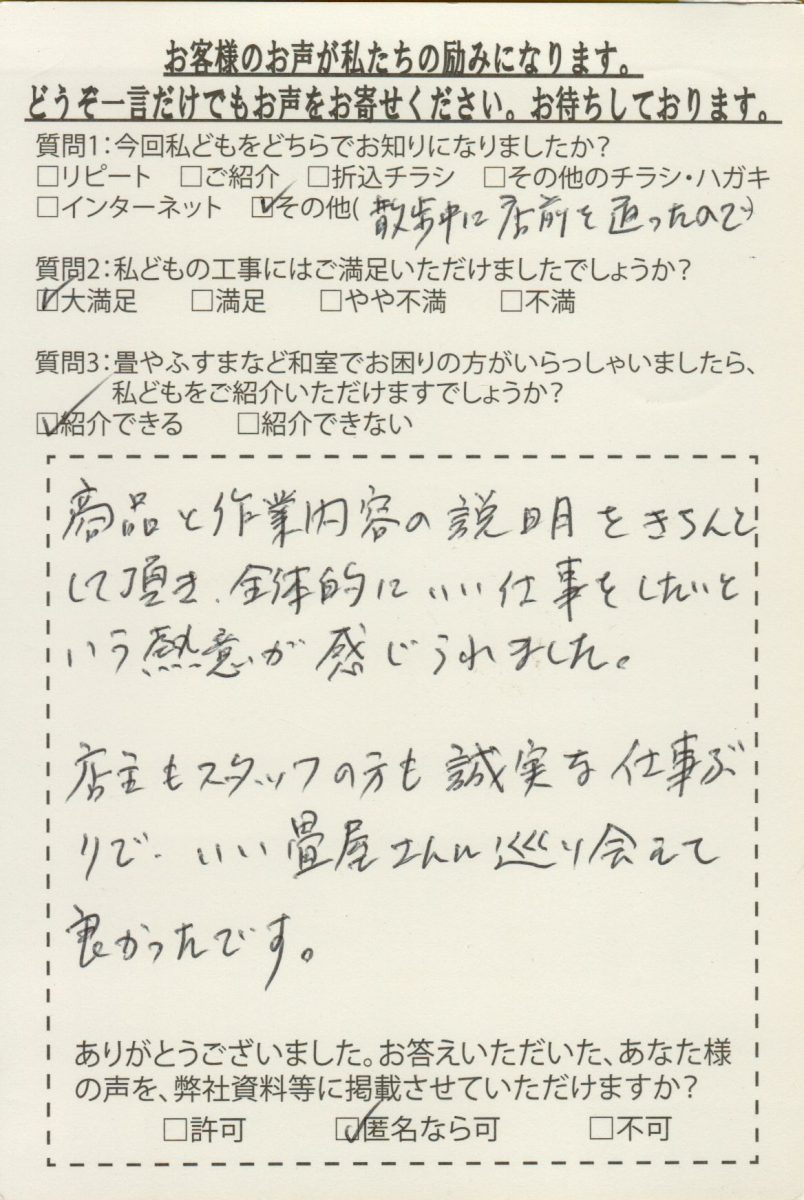 お客様のお声が私たちの励みになります。
どうぞ一言だけでもお声をお寄せください。お待ちしております。
質問1：今回私どもをどちらでお知りになりましたか？
□リピート　□ご紹介　□折込チラシ　□その他のチラシ・ハガキ
□インターネット　☑その他(散歩中に店前を通ったので)
質問2：私どもの工事にはご満足いただけましたでしょうか？
☑大満足　□満足　□やや不満　□不満
質問3：畳やふすまなど和室でお困りの方がいらっしゃいましたら、
私どもをご紹介いただけますでしょうか？
☑紹介できる　□紹介できない
商品と作業内容の説明をきちんと
して頂き、全体的にいい仕事をしたいと
いう熱意が感じられました。
店主もスタッフの方も誠実な仕事ぶ
りで、いい畳屋さんに巡り会えて
良かったです。
ありがとうございました。お答えいただいた、あなた様
の声を、弊社資料等に掲載させていただけますか？
□許可　☑匿名なら可　□不可